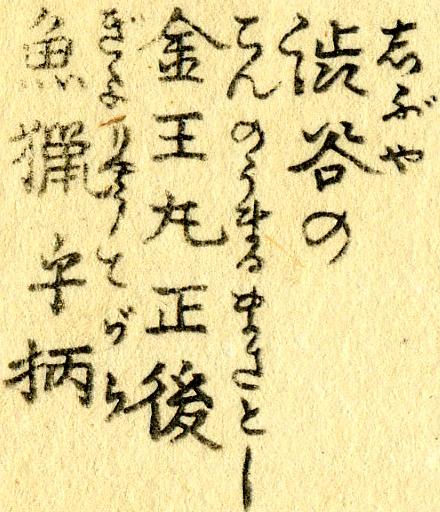 志ぶや
渋谷の
こんのうまるまさとし
金王丸正後
ぎよりやうてがら
魚猟手柄